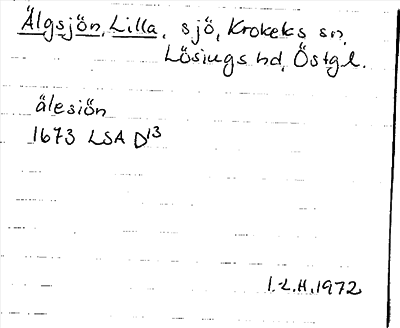 Älgsjön, Lilla, sjö, Krokeks sn,
Lösings hd, Östgl.
älesiön
1673 LSA D13
I.L.H. 1972